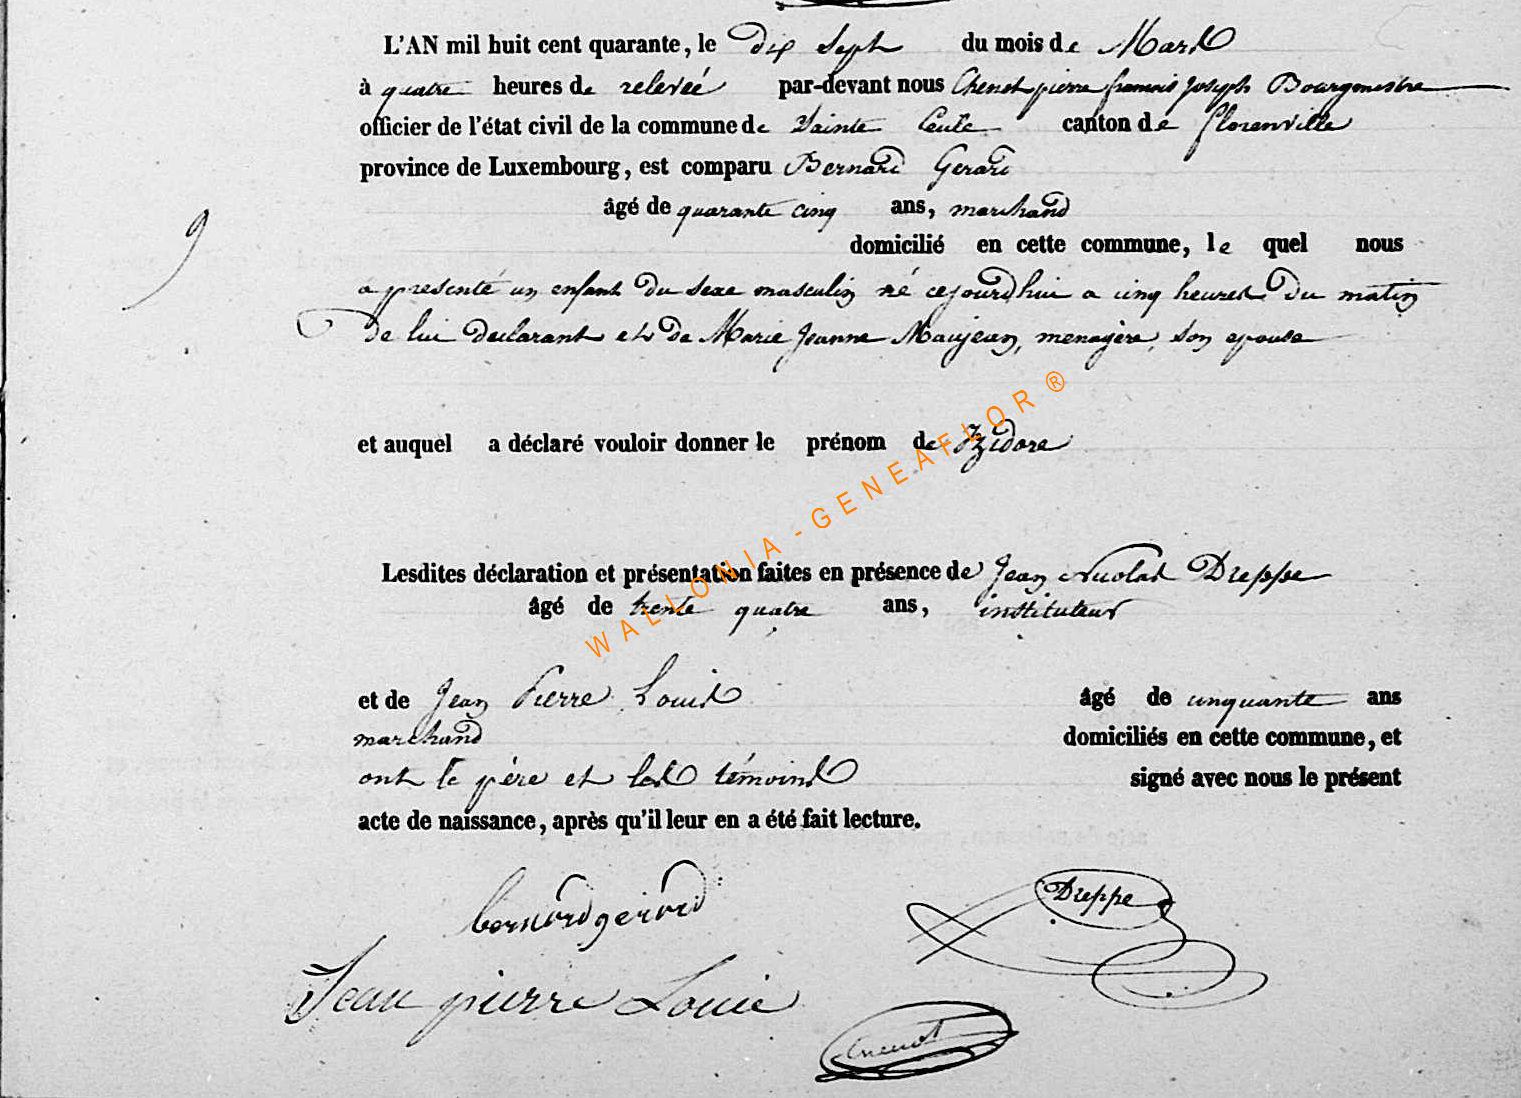 L'AN mil huit cent quarante, le dix Sept du mois de Mars
à quatre heures de relevée par-devant nous Chenot pierre francois Joseph Bourgmestre
officier de l'état civil de la commune de Sainte Cecile canton de florenville
province de Luxembourg, est comparu Bernard Gerard
âgé de quarante cinq ans, marchand
domicilié en cette commune, le quel nous
9
a présenté un enfant du sexe masculin né cejourd'hui a cinq heures Du matin
de lui declarant et de Marie Jeanne Maujean, menagère, son epouse
et auquel a déclaré vouloir donner le prénom de Izidore
Lesdites déclaration et présentation faites en présence de Jean Nicolas Dreppe
âgé de trente quatre ans, instituteur
et de Jean Pierre Louis âgé de cinquante ans
marchand domiciliés en cette commune, et
ont le père et les témoins signé avec nous le présent
acte de naissance, après qu'il leur en a été fait lecture.
bernard gerard Dreppe
Jean pierre Louis
Chenot
WALLONIA - GENEAFLOR ®